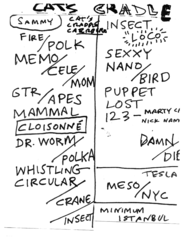 CAT'S CRADLE
SAMMY
CAT'S
CRADLE
FIRE/POLK
MEMO/CELE/MOM
GTR/APES
MAMMAL
CLOISONNÉ
DR. WORM/POLKA
WHISTLING
CIRCULAR/CRANE/INSECT
INSECT
"LOCO"
SEXXY
NANO/BIRD
PUPPET
LOST
123 - MARTY
NICK
DAMN/DIE
TESLA
MESO/NYC
MINIMUM
ISTANBUL